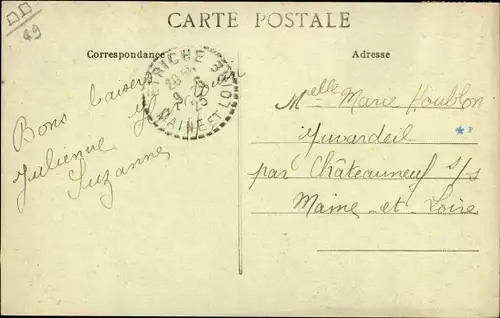 49
CARTE POSTALE
Correspondance
Adresse
BRICHE
MAINE ET LOIRE
Bons baisers
Julienne
Suzanne
Melle Marie Houblon
Juvardeil
par Châteauneuf s/s
Maine-et-Loire